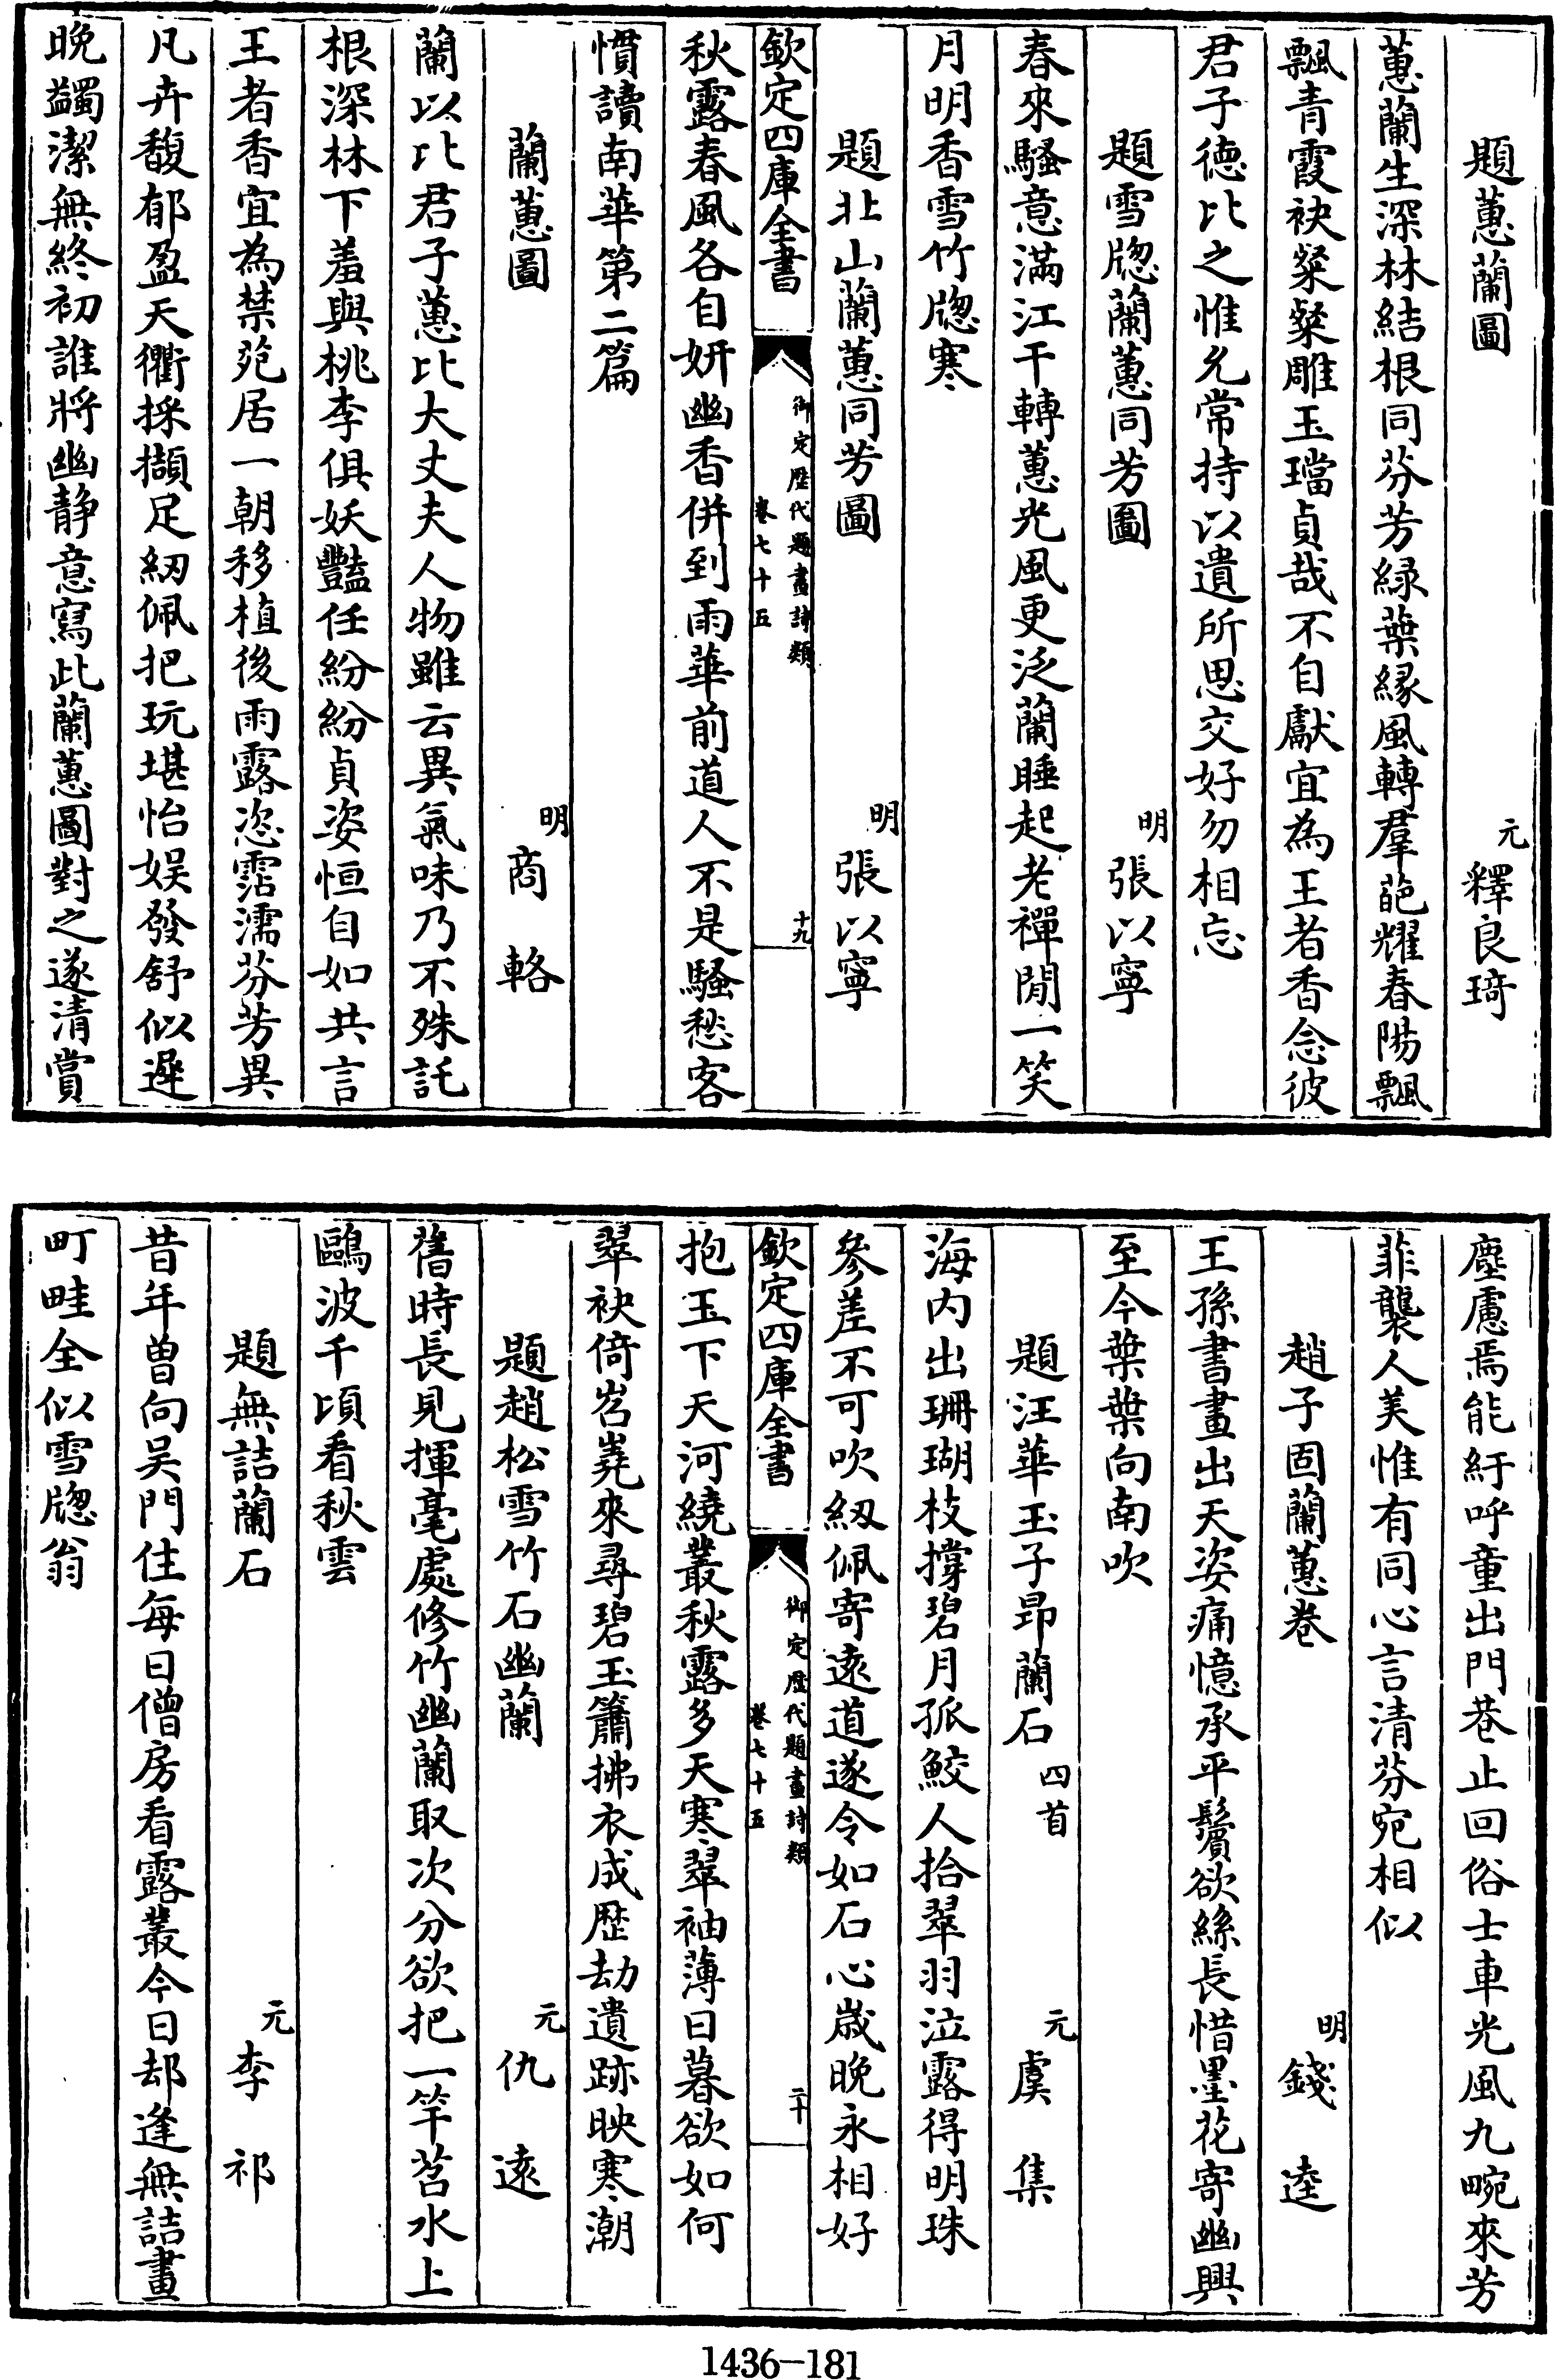 題蕙蘭圖　元釋良琦
蕙蘭生深林結根同芬芳緑葉縁風轉羣葩耀春陽飄
飄青霞袂粲粲雕玉璫貞哉不自獻宜為王者香念彼
君子徳比之惟允常持以遺所思交好勿相忘
題雪牎蘭蕙同芳圖　明張以寧
春來騷意滿江干轉蕙光風更泛蘭睡起老禪閒一笑
月明香雪竹牎寒
題北山蘭蕙同芳圖　明張以寧
欽定四庫全書　御定歴代題畫詩類卷七十五　十九
秋露春風各自妍幽香併到雨華前道人不是騷愁客
慣讀南華第二篇
蘭蕙圖　明商輅
蘭以比君子蕙比大丈夫人物雖云異氣味乃不殊託
根深林下羞與桃李俱妖豔任紛紛貞姿恒自如共言
王者香宜為禁苑居一朝移植後雨露恣霑濡芬芳異
凡卉馥郁盈天衢採擷足紉佩把玩堪怡娱發舒似遲
晚蠲潔無終初誰將幽静意寫此蘭蕙圖對之遂清賞
塵慮焉能紆呼童出門巷止回俗士車光風九畹來芳
菲襲人美惟有同心言清芬宛相似
趙子固蘭蕙卷　明錢逵
王孫書畫出天姿痛憶承平鬢欲絲長惜墨花寄幽興
至今葉葉向南吹
題汪華玉子昂蘭石四首　元虞集
海内出珊瑚枝撐碧月孤鮫人拾翠羽泣露得明珠
參差不可吹紉佩寄遠道遂令如石心歳晚永相好
欽定四庫全書　御定歴代題畫詩類卷七十五　二十
抱玉下天河繞叢秋露多天寒翠袖薄日暮欲如何
翠袂倚岧嶤來尋碧玉簫拂衣成歴劫遺跡映寒潮
題趙松雪竹石幽蘭　元仇遠
舊時長見揮毫處修竹幽蘭取次分欲把一竿苕水上
鷗波千頃看秋雲
題無詰蘭石　元李祁
昔年曽向吴門住每日僧房看露叢今日却逢無詰畫
町畦全似雪牎翁
1436-181